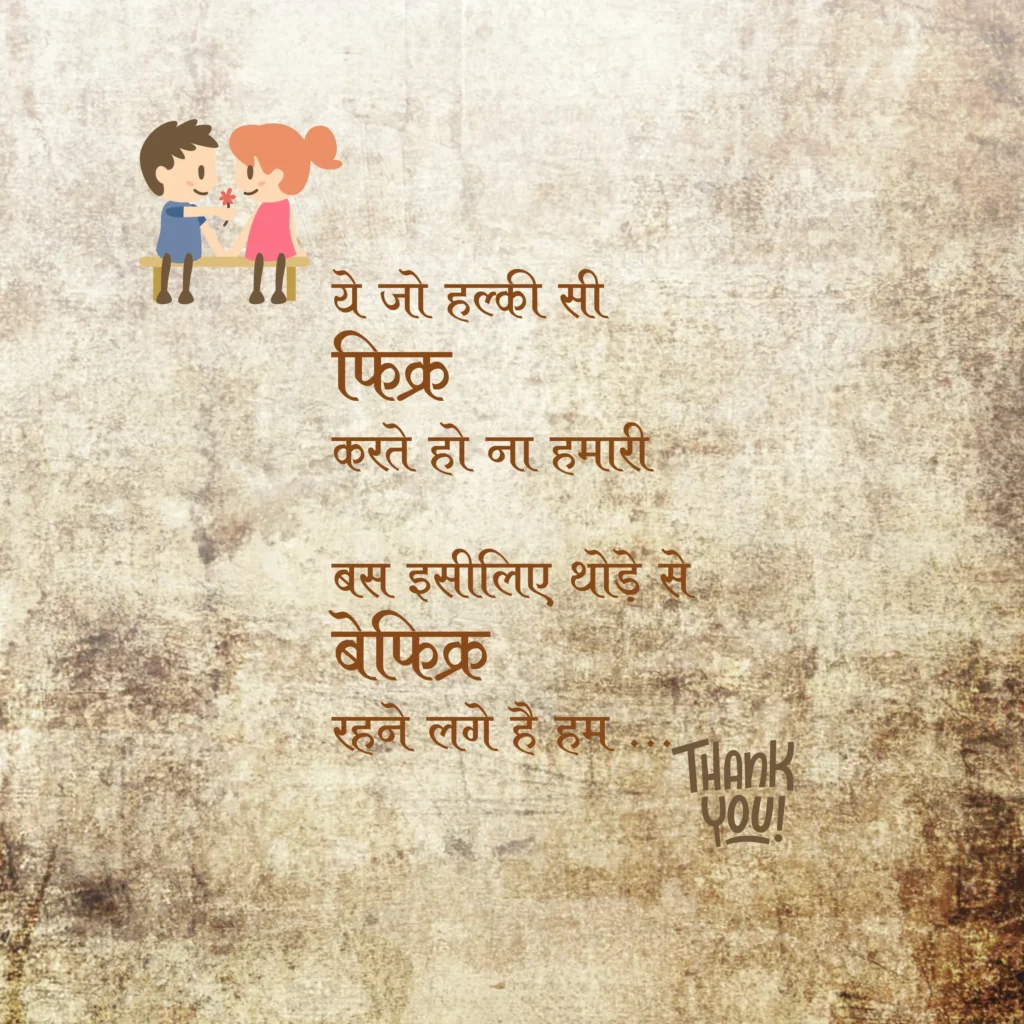 ये जो हल्की सी
फिक्र
करते हो ना हमारी
बस इसीलिए थोड़े से
बेफिक्र
रहने लगे है हम ...
THANK
YOU!